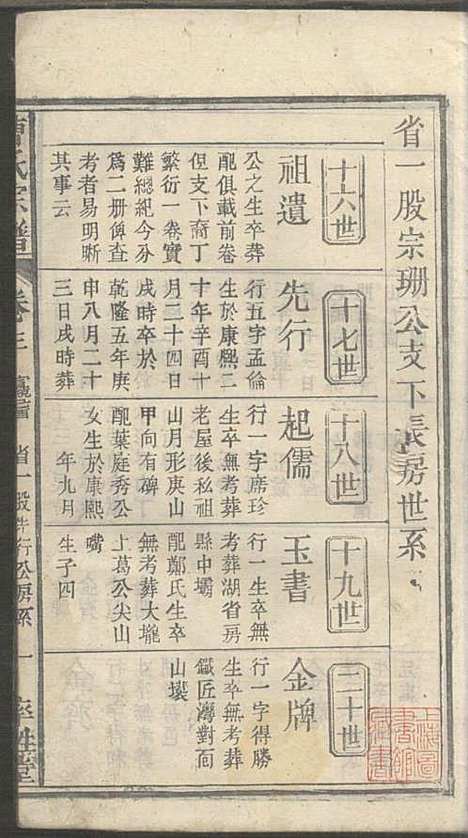 省一股宗珊公支下長房世系
十六世
祖遺
公之生卒葬
配俱載前卷
但支下裔丁
繁衍一卷實
難總紀今分
爲二册俾查
考者易明晰
其事云
十七世
先行
行五字孟倫
生於康熙二
十年辛酉十
月二十四日
戌時卒於
乾隆五年庚
申八月二十
三日戌時葬
十八世
起儒
行一字席珍
生卒無考葬
老屋後私祖
山月形庚山
甲向有碑
配葉庭秀公
女生於康熙
年九月
十九世
玉書
行一生卒無
考葬湖省房
縣中壩
配鄭氏生卒
無考葬大壠
上葛公尖山
嘴
生子四
二十世
金牌
行一字得勝
生卒無考葬
鐵匠灣對面
山
氏宗譜
卷三
省一股先行公房系 一
上海圖書館藏書